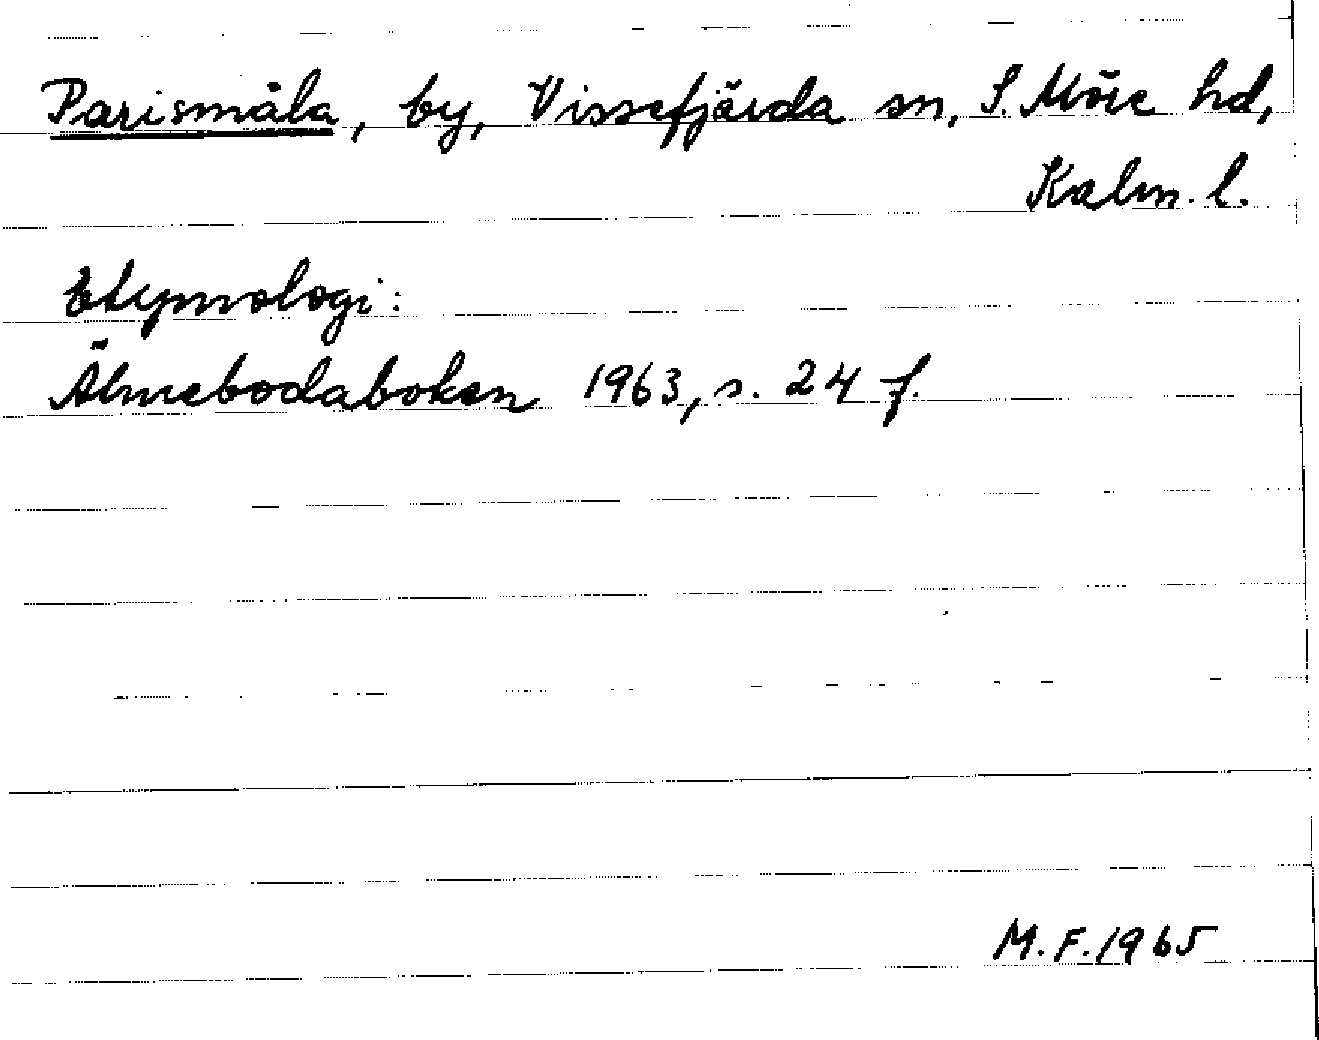 Parismåla, by, Vissefjärda sn, S. Möre hd,
Kalm. l.
Etymologi:
Älmebodaboken 1963, s. 24 f.
M.F. 1965